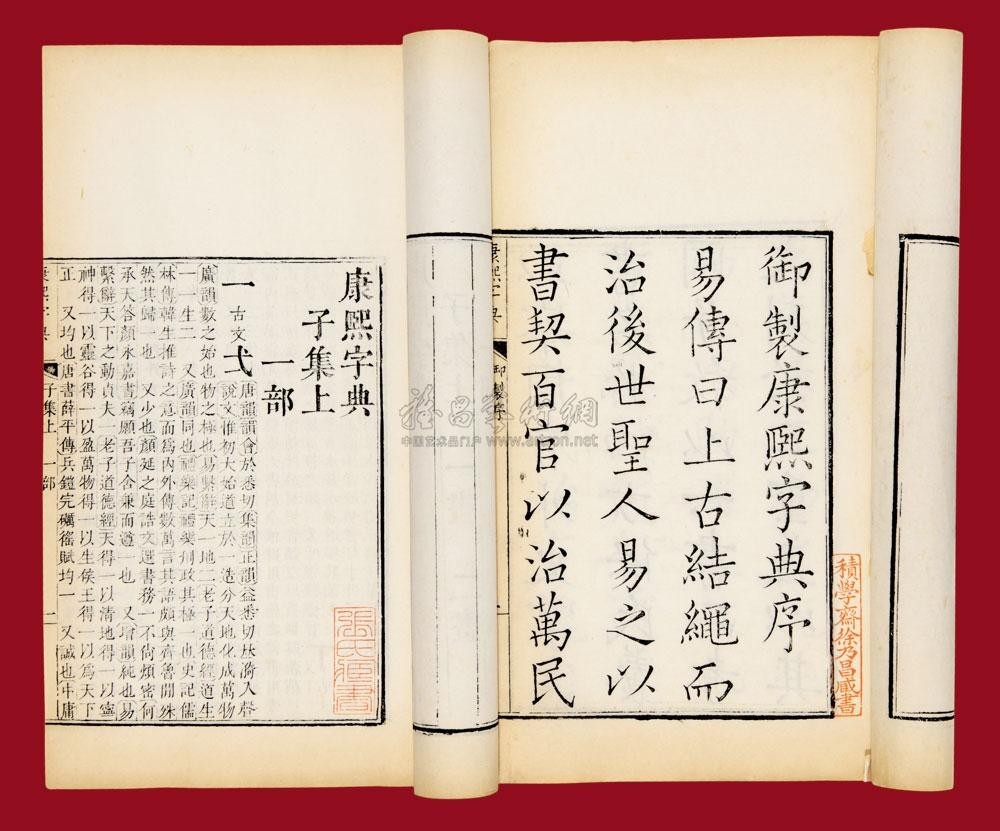 御製康熙字典序
易傳曰上古結繩而
治後世聖人易之以
書契百官以治萬民
積學齋徐乃昌藏書
康熙字典 御製序 一
康熙字典
子集上
一部
一 古文 弌
唐韻韻會於悉切集韻正韻益悉切𠀤漪入聲
說文惟初大始道立於一造分天地化成萬物
廣韻數之始也物之極也易繫辭天一地二老子道德經道生
一一生二 又廣韻同也禮樂記禮樂刑政其極一也史記儒
林傳韓生推詩之意而爲內外傳數萬言其語頗與齊魯閒殊
然其歸一也 又少也顏延之庭誥文選書務一不尙煩密何
承天答顏永嘉書竊願吾子舍兼而遵一也 又增韻純也易
繫辭天下之動貞夫一老子道德經天得一以清地得一以寧
神得一以靈谷得一以盈萬物得一以生侯王得一以爲天下
正 又均也唐書薛平傳兵鎧完礪徭賦均一 又誠也中庸
康熙字典 子集上 一部 二
張氏藏書
雅昌藝術網
中国艺术品门户 www.artron.net